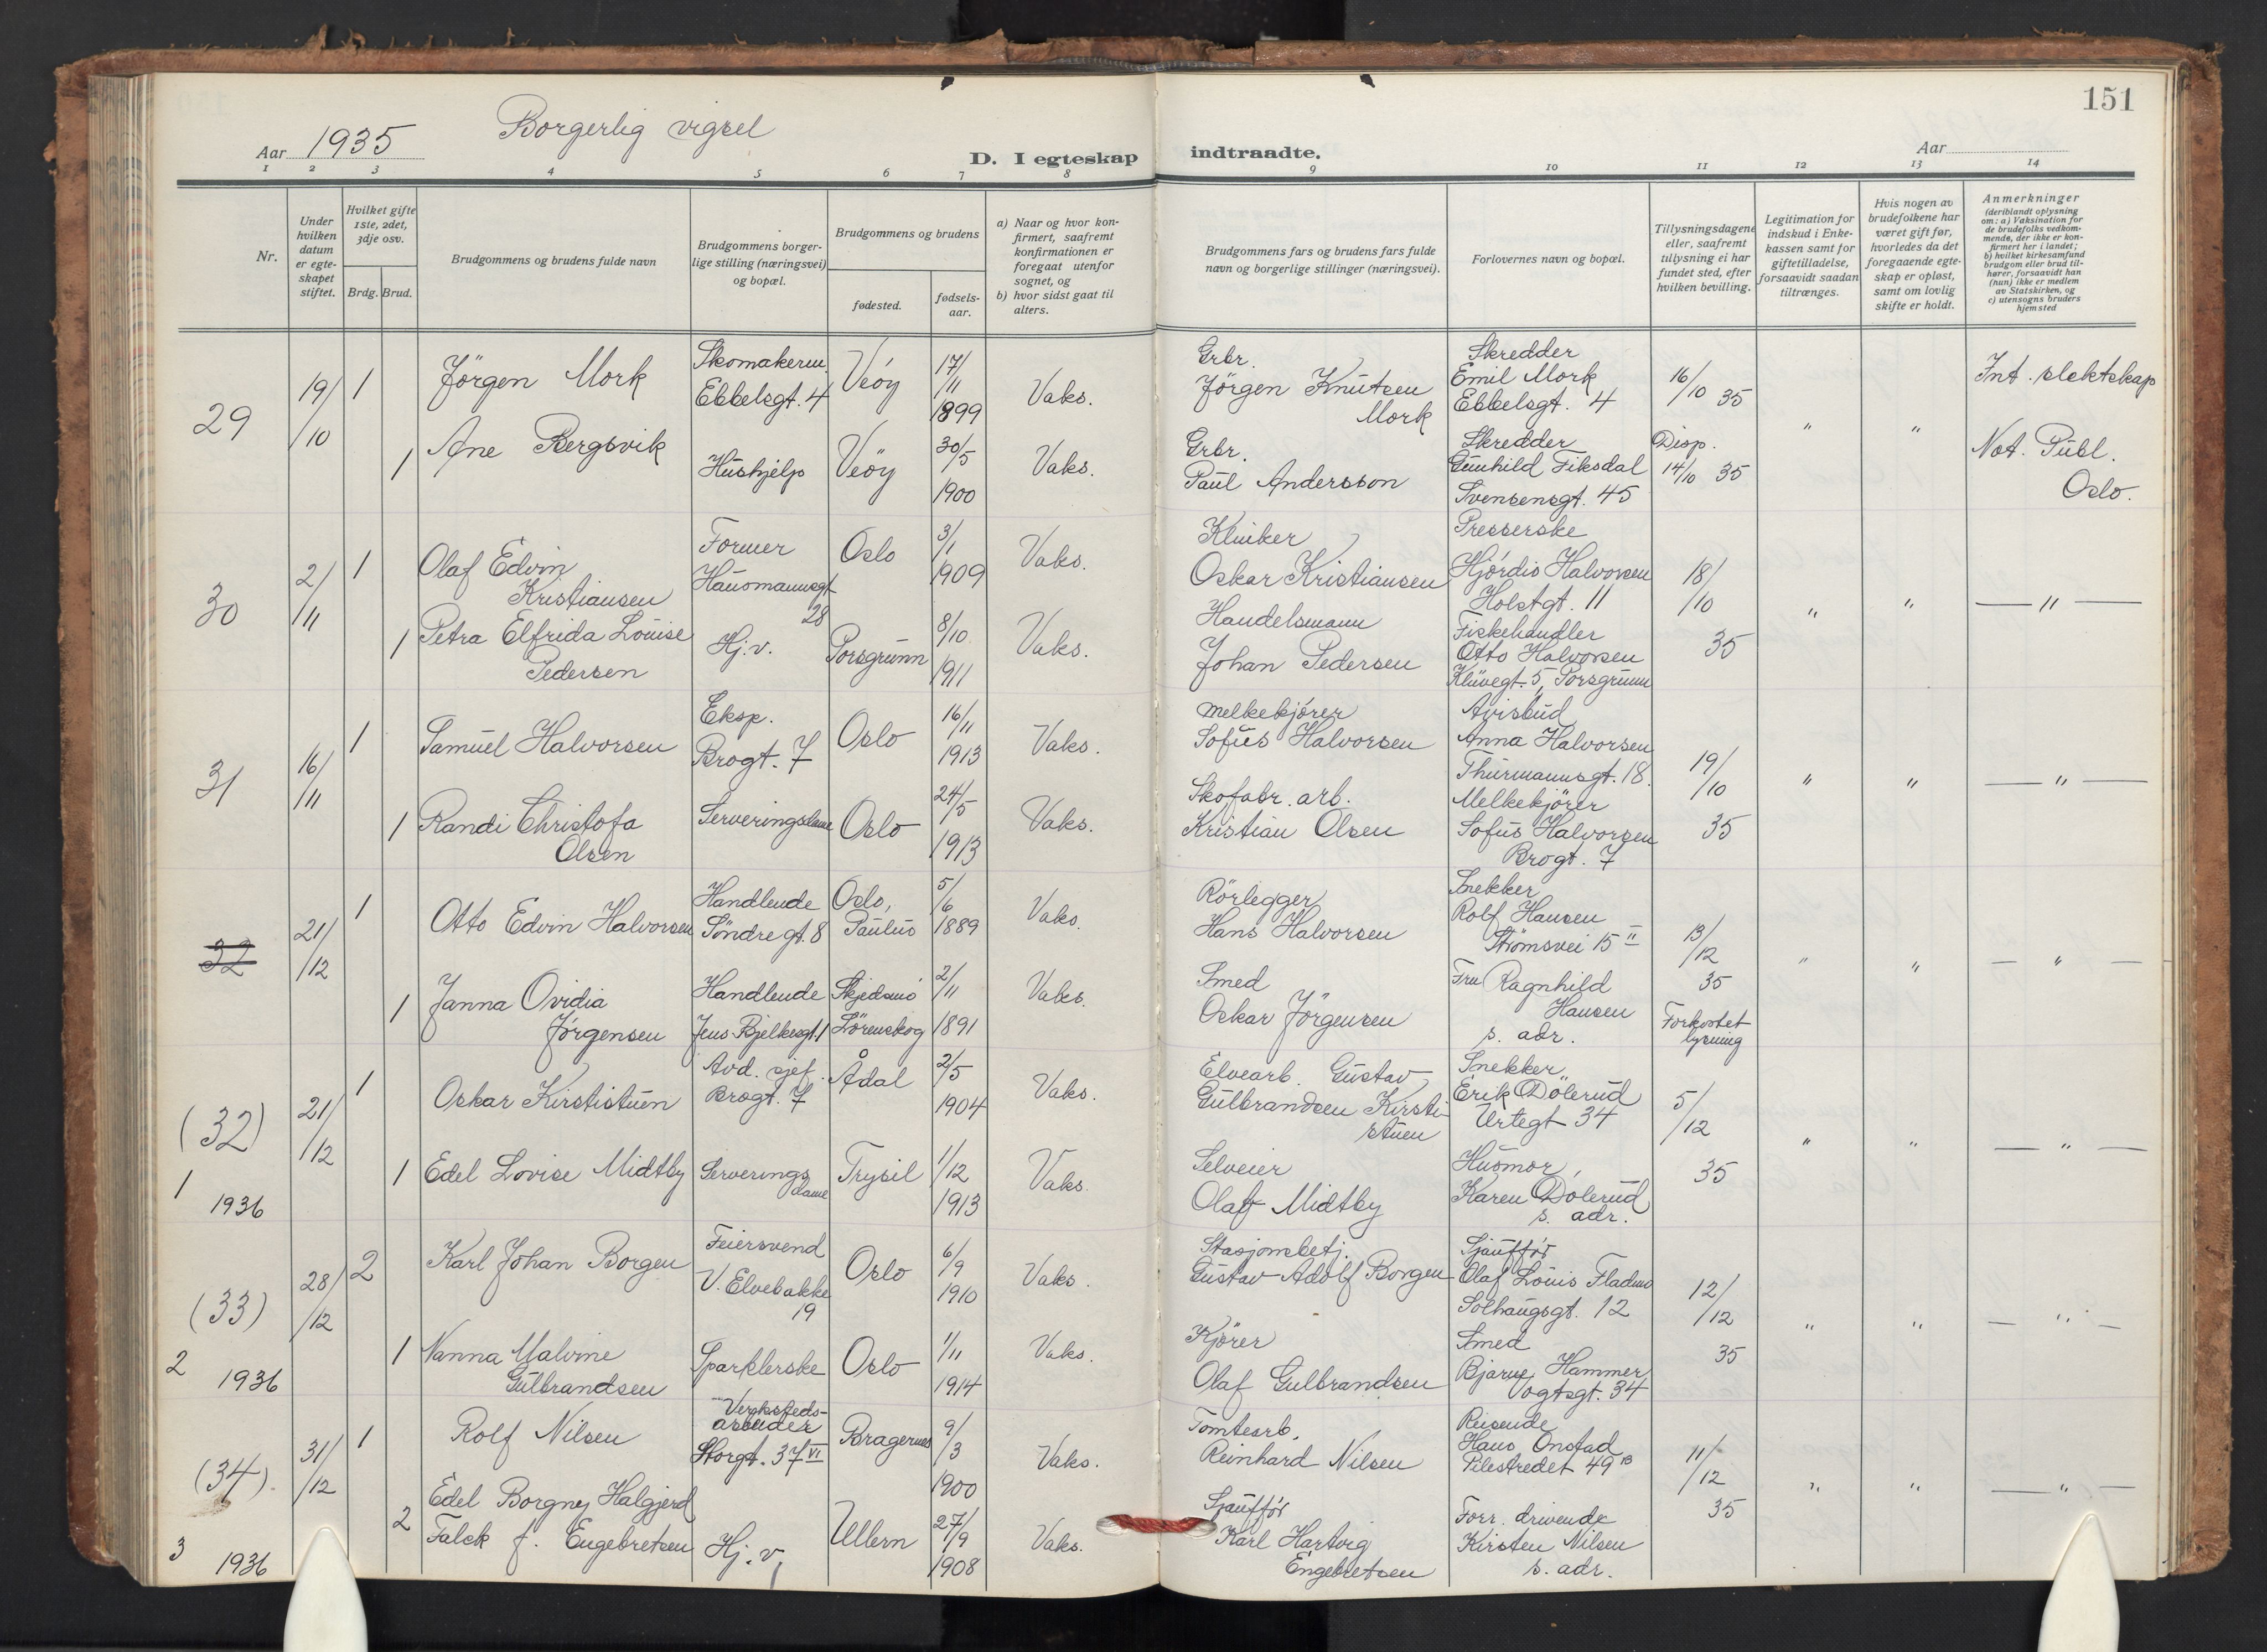 151
Borgerlig vigsel
Aar 1935
D. I egteskap indtraadte.
Aar
1 2 3 4 5 6 7 8 9 10 11 12 13 14
Nr.
Under hvilken datum er egteskapet stiftet.
Hvilket gifte 1ste, 2det, 3dje osv.
Brdg. Brud.
Brudgommens og brudens fulde navn
Brudgommens borgerlige stilling (næringsvei) og bopæl.
Brudgommens og brudens
fødested.
fødselsaar.
a) Naar og hvor konfirmert, saafremt konfirmationen er foregaat utenfor sognet, og
b) hvor sidst gaat til alters.
Brudgommens fars og brudens fars fulde navn og borgerlige stillinger (næringsvei).
Forlovernes navn og bopæl.
Tillysningsdagene eller, saafremt tillysning ei har fundet sted, efter hvilken bevilling.
Legitimation for indskud i Enkekassen samt for giftetilladelse, forsaavidt saadan tiltrænges.
Hvis nogen av brudefolkene har været gift før, hvorledes da det foregaaende egteskap er opløst, samt om lovlig skifte er holdt.
Anmerkninger
(deriblandt oplysning om: a) Vaksination for de brudefolks vedkommende, der ikke er konfirmert her i landet; b) hvilket kirkesamfund brudgom eller brud tilhører, forsaavidt han (hun) ikke er medlem av Statskirken, og c) utensogns bruders hjemsted
29 19/10 1 Jörgen Mork Skomakerm. Ebbelsgt. 4 Veöy 17/11 1899 Vaks. Grbr. Jörgen Knutsen Mork Skredder Emil Mork Ebbelsgt. 4 16/10 35 " " Int. slektskap
1 Ane Bergsvik Hushjelp Veöy 30/5 1900 Vaks. Grbr. Paul Andersson Skredder Gunhild Fiksdal Svensensgt. 45 Disp. 14/10 35 Not. Publ. Oslo.
30 2/11 1 Olaf Edvin Kristiansen Former Hausmannsgt 28 Oslo 3/1 1909 Vaks. Klinker Oskar Kristiansen Presserske Hjördis Halvorsen Holstgt. 11 18/10 35 " " — " —
1 Petra Elfrida Louise Pedersen Hj.v. Porsgrunn 8/10 1911 Vaks. Handelsmann Johan Pedersen Fiskehandler Otto Halvorsen Kluvegt. 5, Porsgrunn
31 16/11 1 Samuel Halvorsen Eksp. Brogt. 7 Oslo 16/11 1913 Vaks. Melkekjörer Sofus Halvorsen Avisbud Anna Halvorsen Thurmannsgt. 18. 19/10 35 " " — " —
1 Randi Christofa Olsen Serveringsdame Oslo 24/5 1913 Vaks. Skofabr. arb. Kristian Olsen Melkekjörer Sofus Halvorsen Brogt. 7
32 21/12 1 Otto Edvin Halvorsen Handlende Söndregt. 8 Oslo, Paulus 5/6 1889 Vaks. Rörlegger Hans Halvorsen Snekker Rolf Hansen Strömsvei 15 II 13/12 35 " " — " —
1 Janna Ovidia Jörgensen Handlende Jens Bjelkesgt. 1 Skjedsmo Lörenskog 2/11 1891 Vaks. Smed Oskar Jörgensen Fru Ragnhild Hansen s. adr. Forkortet lysning
(32) 21/12 1 Oskar Kirstistuen Avd. sjef. Brogt. 7 Ådal 2/5 1904 Vaks. Elvearb. Gustav Gulbrandsen Kirstistuen Snekker Erik Dölerud Urtegt 34 5/12 35 " " — " —
1 1936 1 Edel Lovise Midtby Serveringsdame Trysil 1/12 1913 Vaks. Selveier Olaf Midtby Husmor, Karen Dölerud s. adr.
(33) 28/12 2 Karl Johan Borgen Feiersvend V. Elvebakke 19 Oslo 6/9 1910 Vaks. Stasjonsbetj. Gustav Adolf Borgen Sjaufför Olaf Louis Fladmo Solhaugsgt. 12 12/12 35 " " — " —
2 1936 1 Nanna Malvine Gulbrandsen Sparklerske Oslo 1/11 1914 Vaks. Kjörer Olaf Gulbrandsen Smed Bjarne Hammer Vogtsgt. 34
(34) 31/12 1 Rolf Nilsen Verkstedsarbeider Storgt. 37 VI Bragernes 9/3 1900 Vaks. Tomtearb. Reinhard Nilsen Reisende Hans Onstad Pilestredet 49 B 11/12 35 " " — " —
3 1936 2 Edel Borgny Halgjerd Falck f. Engebretsen Hj.v. Ullern 27/9 1908 Vaks. Sjaufför Karl Hartvig Engebretsen Forr. drivende Kirsten Nilsen s. adr.